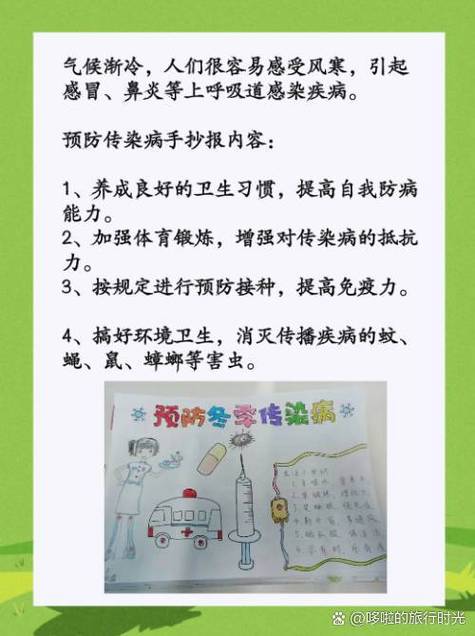 气候渐冷，人们很容易感受风寒，引起
感冒、鼻炎等上呼吸道感染疾病。
预防传染病手抄报内容：
1、养成良好的卫生习惯，提高自我防病
能力。
2、加强体育锻炼，增强对传染病的抵抗
力。
3、按规定进行预防接种，提高免疫力。
4、搞好环境卫生，消灭传播疾病的蚊、
蝇、鼠、蟑螂等害虫。
预防冬季传染病
@哆啦的旅行时光